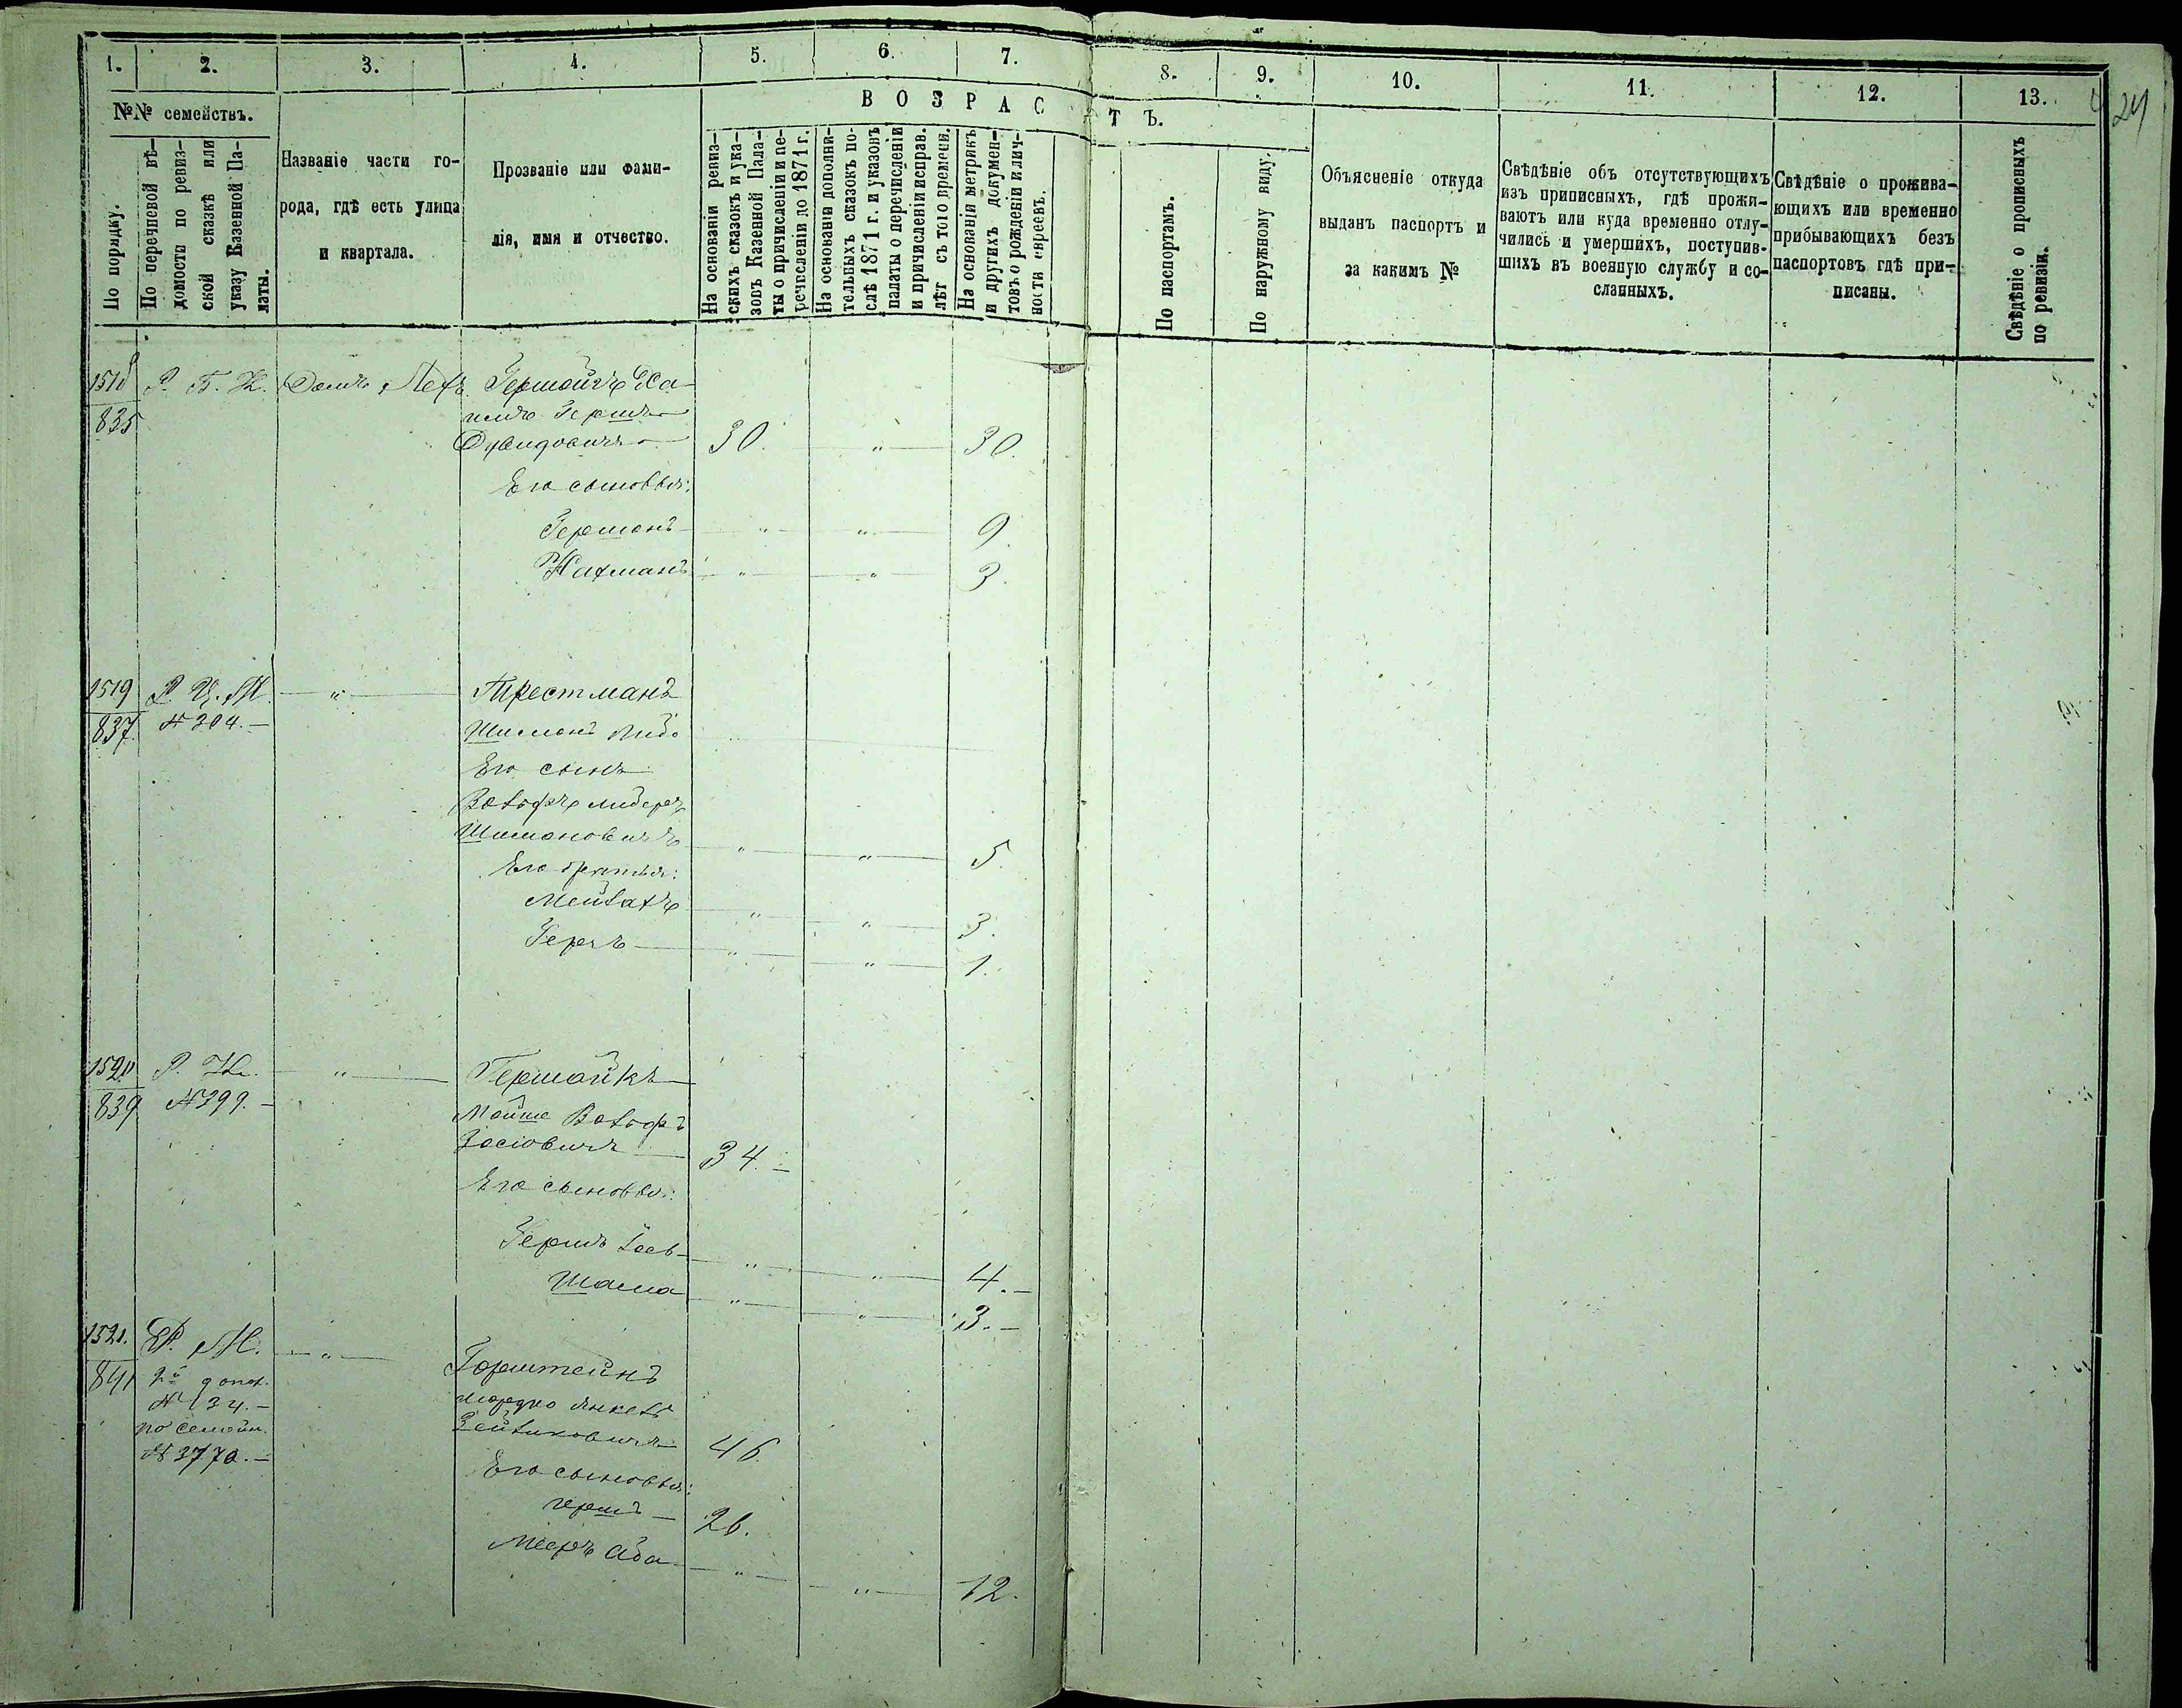 1. 2. 3. 4. 5. 6. 7. 8. 9. 10. 11. 12. 13.
24
№№ семействъ.
ВОЗРАСТЪ.
По порядку.
По перечневой вѣ-
домости по ревиз-
ской сказкѣ или
указу Казенной Па-
латы.
Названіе части го-
рода, гдѣ есть улица
и квартала.
Прозваніе или фами-
лія, имя и отчество.
На основаніи ревиз-
скихъ сказокъ и ука-
зовъ Казенной Пала-
ты о причисленіи и пе-
речисленіи до 1871 г.
На основаніи дополни-
тельныхъ сказокъ по-
слѣ 1871 г. и указовъ
палаты о перечисленіи
и причисленіи исправ.
лѣт съ того времени.
На основаніи метрикъ
и другихъ докумен-
товъ о рожденіи и лич-
ности евреевъ.
По паспортамъ.
По наружному виду.
Объясненіе откуда
выданъ паспортъ и
за какимъ №
Свѣдѣніе объ отсутствующихъ
изъ приписныхъ, гдѣ прожи-
ваютъ или куда временно отлу-
чились и умершихъ, поступив-
шихъ въ военную службу и со-
сланныхъ.
Свѣдѣніе о прожива-
ющихъ или временно
прибывающихъ безъ
паспортовъ гдѣ при-
писаны.
Свѣдѣніе о прописныхъ
по ревизіи.
1518 Р. Б. Н.
835 Гершъ
30. " 30.
Его сыновья:
Гершонъ " " 9.
Нахманъ " " 3.
1519 " Трестманъ
837. № 304. Шимонъ
Его сынъ
Вольфъ
Шимоновичъ " " 5.
Его братья:
" " 3.
Герцъ " " 1.
1520 Р. " Гершойкъ
839 № 399. Мойше Вольфъ
Іосіовичъ 34.
Его сыновья:
Гершъ Лейб " " 4.
Шама " " 3.
1521. Р. М. " Горштейнъ
841 2й допол. Мордко Янкель
№ 134. Зейликовичъ 46.
по семейн.
№ 3770. Его сыновья:
Гершъ 26.
Мееръ Аба " " 12.